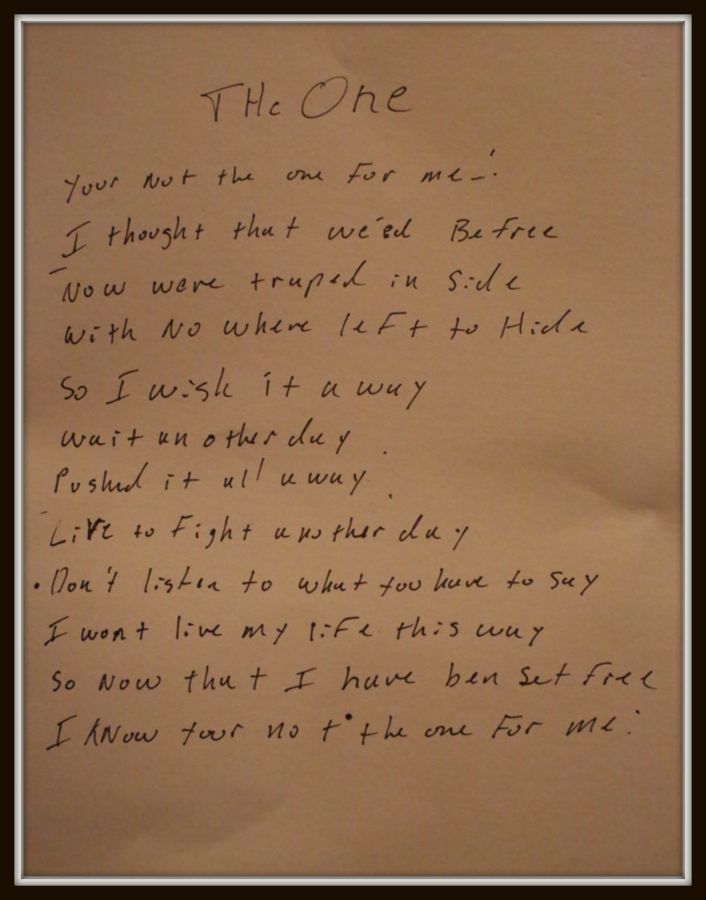 THe One
Your Not the one For me!
I thought that we'ed Be free
Now were traped in Side
with No where left to Hide
So I wish it a way
wait an other day.
Pushed it all away.
Live to Fight another day
Don't listen to what you have to say
I wont live my life this way
So Now that I have ben Set Free
I KNow your not the one For me!